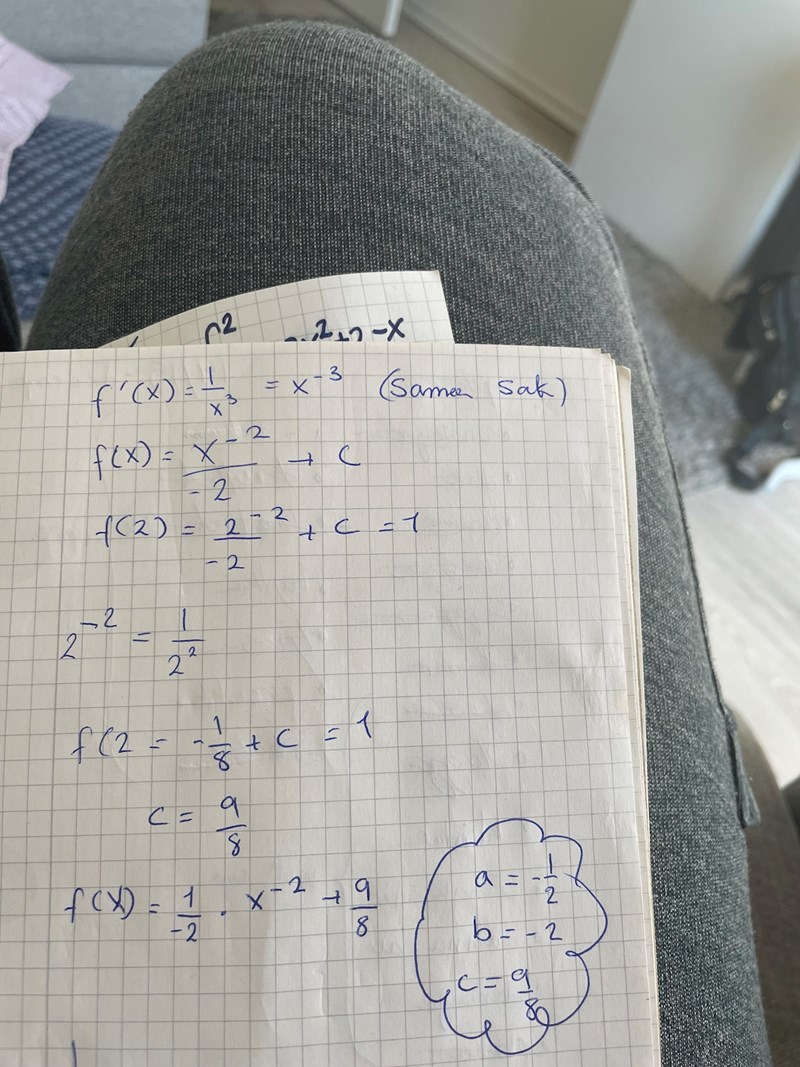 r² x²+2-x
f'(x) = 1/x³ = x⁻³ (Samma sak)
f(x) = x⁻²/-2 + C
f(2) = 2⁻²/-2 + C = 1
2⁻² = 1/2²
f(2 = -1/8 + C = 1
C = 9/8
f(x) = 1/-2 · x⁻² + 9/8
a = -1/2
b = -2
c = 9/8